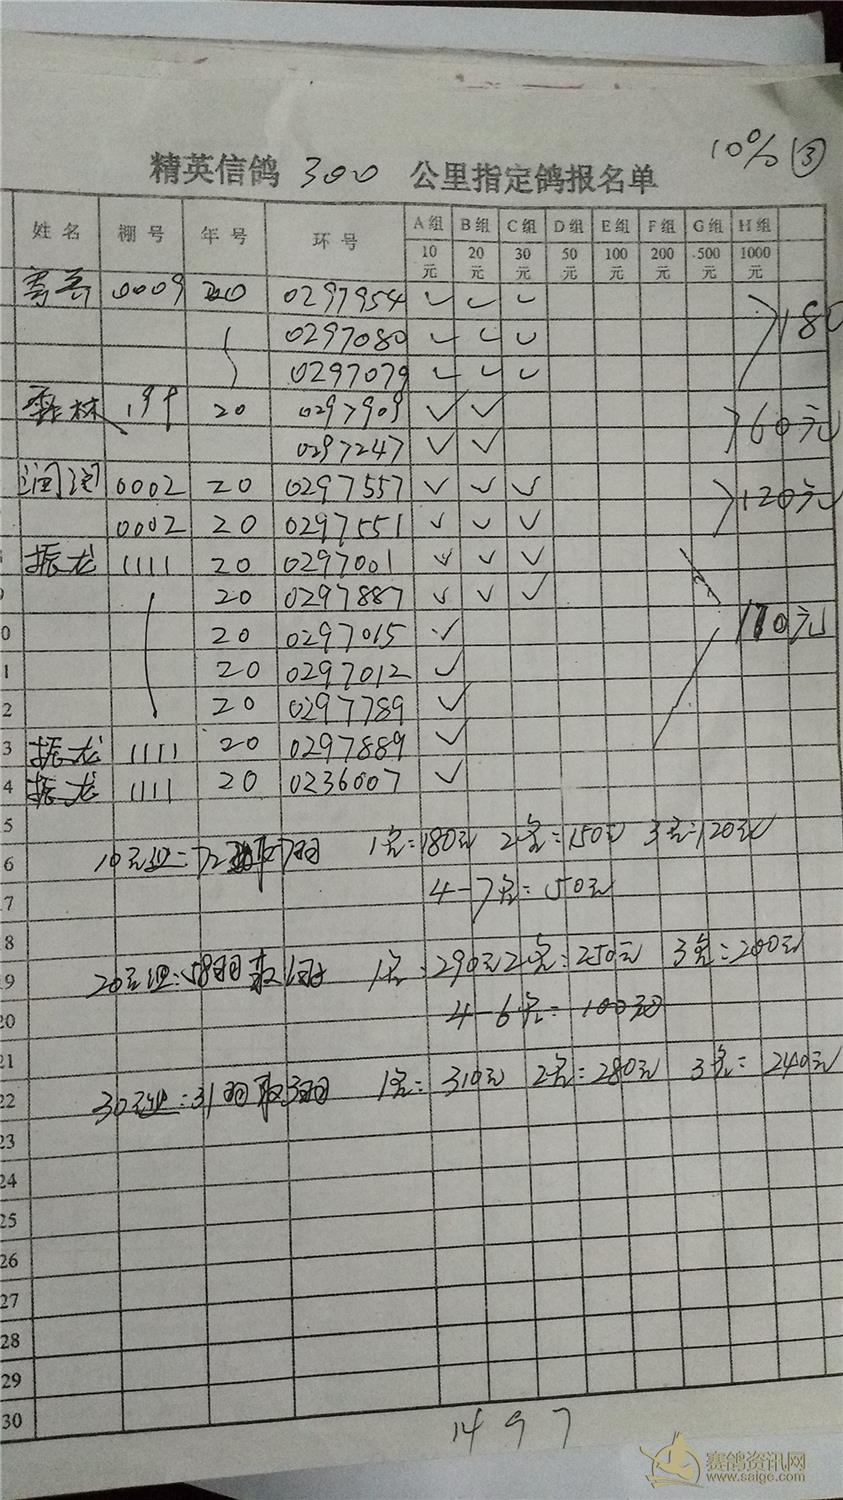 10% ③
精英信鸽 300 公里指定鸽报名单
姓名 棚号 年号 环号 A组 B组 C组 D组 E组 F组 G组 H组
10元 20元 30元 50元 100元 200元 500元 1000元
0009 20 0297954 ✓ ✓ ✓ 180
0297080 ✓ ✓ ✓
0297079 ✓ ✓ ✓
林 199 20 0297909 ✓ ✓ 60元
0297247 ✓ ✓
润润 0002 20 0297557 ✓ ✓ ✓ 120元
0002 20 0297551 ✓ ✓ ✓
振龙 1111 20 0297001 ✓ ✓ ✓
9 20 0297887 ✓ ✓ ✓
0 20 0297015 ✓ 170元
1 20 0297012 ✓
2 20 0297789 ✓
3 振龙 1111 20 0297889 ✓
4 振龙 1111 20 0236007 ✓
5
6 10元组=72羽取7羽 1名=180元 2名=150元 3名=120元
7 4-7名=50元
8
9 20元组:58羽取6羽 1名:290元 2名=250元 3名=200元
20 4-6名=100元
21
22 30元组:31羽取3羽 1名=310元 2名=280元 3名=240元
23
24
25
26
27
28
29
30
1497
赛鸽资讯网
www.saige.com